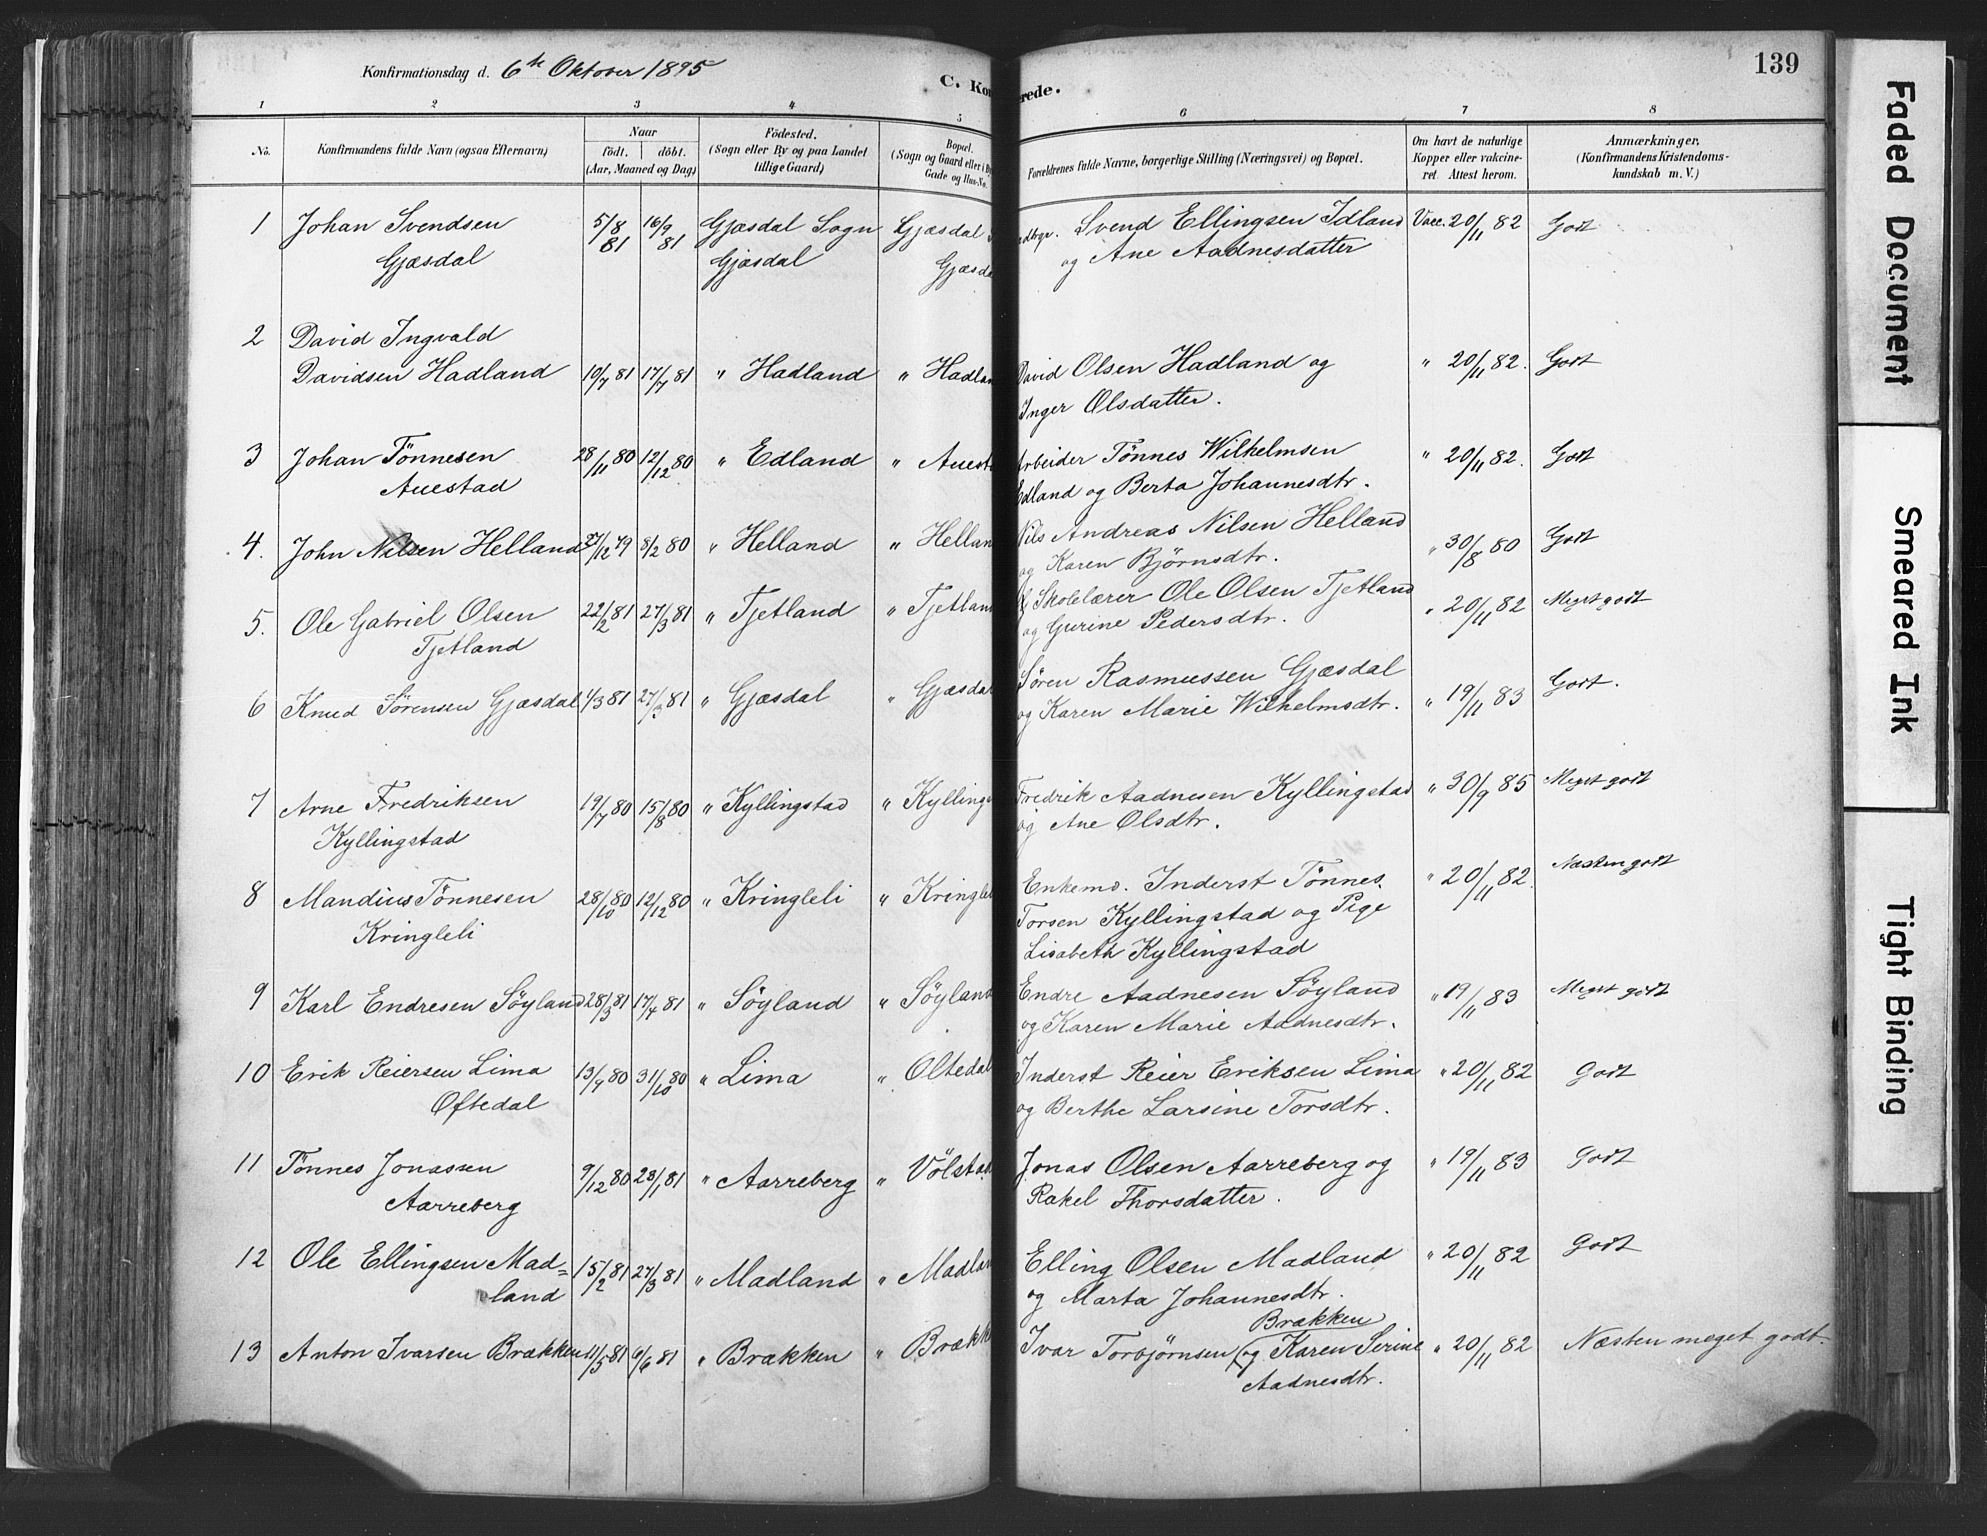 Konfirmationsdag d. 6te Oktober 1895
C. Kon rede.
139
1 2 3 4 5 6 7 8
No.
Konfirmandens fulde Navn (ogsaa Efternavn)
Naar
födt. döbt.
(Aar, Maaned og Dag)
Födested.
(Sogn eller By og paa Landet
tillige Gaard)
Bopæl.
(Sogn og Gaard eller i By
Gade og Hus-No.
Forældrenes fulde Navne, borgerlige Stilling (Næringsvei) og Bopæl.
Om havt de naturlige
Kopper eller vakcine-
ret. Attest herom.
Anmærkninger.
(Konfirmandens Kristendoms-
kundskab m. V.)
1 Johan Svendsen 5/8 81 16/9 81 Gjæsdal Sogn Gjæsdal Svend Ellingsen Idland Vacc. 20/11 82 Godt
Gjæsdal Gjæsdal Gjæsda og Ane Aadnesdatter
2 David Ingvald
Davidsen Hadland 10/7 81 17/7 81 " Hadland " Hadlan David Olsen Hadland og " 20/11 82. Godt
Inger Olsdatter.
3 Johan Tönnesen 28/11 80 12/12 80 " Edland " Auest Arbeider Tönnes Wilhelmsen " 20/11 82. Godt
Auestad Edland og Berta Johannesdtr.
4. John Nilsen Helland 27/12 79 8/2 80 " Helland " Hellan Nils Andreas Nilsen Helland " 30/8 80 Godt
og Karen Björnsdtr.
5. Ole Gabriel Olsen 22/2 81 27/3 81 " Tjetland " Tjetlan Skolelærer Ole Olsen Tjetland " 20/11 82 Meget godt
Tjetland og Gurine Pedersdtr.
6 Knud Sörensen Gjæsdal 1/3 81 27/3 81 " Gjæsdal " Gjæsdal Sören Rasmussen Gjæsdal " 19/11 83 Godt.
og Karen Marie Wilhelmsdtr.
7 Arne Fredriksen 19/7 80 15/8 80 " Kyllingstad " Kyllings Fredrik Aadnesen Kyllingstad " 30/9 85 Meget godt
Kyllingstad og Ane Olsdtr.
8 Mandius Tönnesen 28/10 80 12/12 80 " Kringleli " Kringlel Enkemd. Inderst Tönnes " 20/11 82. Næsten godt
Kringleli Torsen Kyllingstad og Pige
Lisabeth Kyllingstad
9 Karl Endresen Söyland 28/3 81 17/4 81 " Söyland " Söyland Endre Aadnesen Söyland " 19/11 83 Meget godt
og Karen Marie Aadnesdtr.
10 Erik Reiersen Lima 13/9 80 31/10 80 " Lima " Oltedal Inderst Reier Eriksen Lima " 20/11 82 Godt
Oftedal og Berthe Larsine Torsdtr.
11 Tönnes Jonassen 9/12 80 23/1 81 " Aarreberg " Völstad Jonas Olsen Aarreberg og " 19/11 83 Godt
Aarreberg Rakel Thorsdatter.
12 Ole Ellingsen Mad= 15/2 81 27/3 81 " Madland " Madlan Elling Olsen Madland " 20/11 82 Godt
land og Marta Johannesdtr.
Brækken
13 Anton Ivarsen Brækken 11/5 81 6/6 81 " Brækken " Brækk Ivar Torbjörnsen og Karen Serine " 20/11 82 Næsten meget godt.
Aadnesdtr.
Faded Document
Smeared Ink
Tight Binding